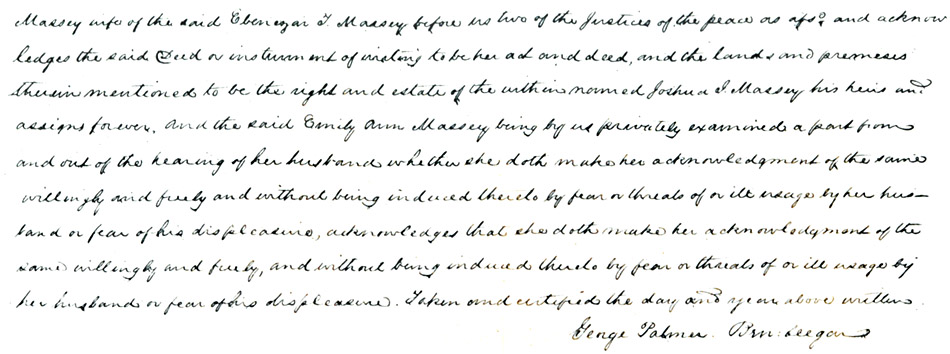 Massey wife of the said Ebenezar T. Massey before us two of the Justices of the peace as afso. and acknow
ledges the said Deed or instrument of writing to be her act and deed, and the lands and premises
therein mentioned to be the right and estate of the within named Joshua T Massey his heirs and
assigns forever. And the said Emily Ann Massey being by us privately examined a part from
and out of the hearing of her husband whether she doth make her acknowledgment of the same
willingly and freely and without being induced thereto by fear or threats of or ill usage by her hus–
band or fear of his displeasure, acknowledges that she doth make her acknowledgment of the
same willingly and freely, and without being induced thereto by fear or threats of or ill usage by
her husband or fear of his displeasure. Taken and certified the day and year above written.
George Palmer.